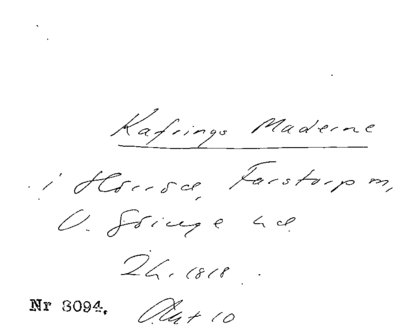 Kafrings Maderne
i Hörröd, Farstorp m,
V. Göinge hd
Lh. 1818.
Nr 3094. Akt 10